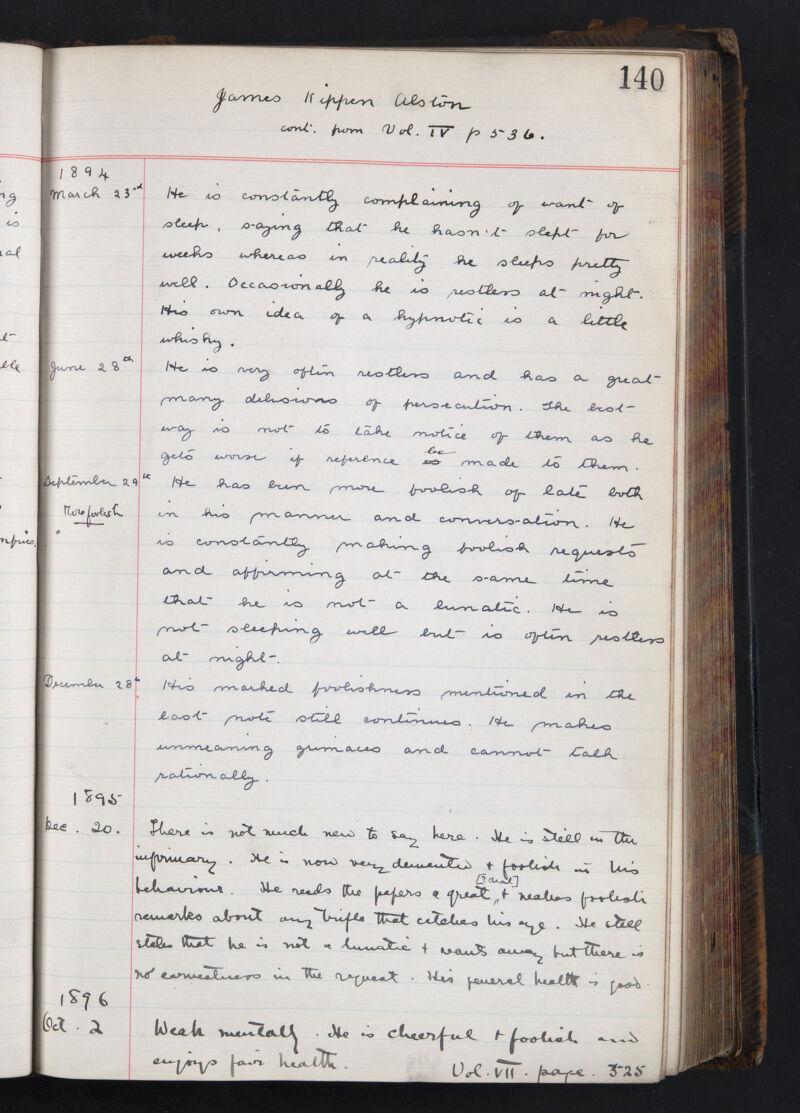 140
James Kippen Alston
cont. from Vol. IV p 536.
1894
March 23rd He is constantly complaining of want of
sleep, saying that he hasn't slept for
weeks whereas in reality he sleeps pretty
well. Occasionally he is restless at night.
His own idea of a hypnotic is a little
whisky.
June 28th He is very often restless and has a great
many delusions of persecution. The best
way is not to take notice of them as he
gets worse if reference be made to them.
September 29th He has been more foolish of late both
More foolish in his manner and conversation. He
" is constantly making foolish requests
and affirming at the same time
that he is not a lunatic. He is
not sleeping well but is often restless
at night.
December 28th His marked foolishness mentioned in the
last note still continues. He makes
unmeaning grimaces and cannot talk
rationally.
1895
Dec. 20. There is not much new to say here. He is still in the
infirmary. He is now very demented + foolish in his
behaviour. He reads the papers a great [? deal] + makes foolish
remarks about any trifle that catches his eye. He still
states that he is not a lunatic + wants away but there is
no earnestness in the request. His general health is good.
1896
Oct. 2 Weak mentally. He is cheerful + foolish and
enjoys fair health.
Vol. VII. page. 325
ng
is
al